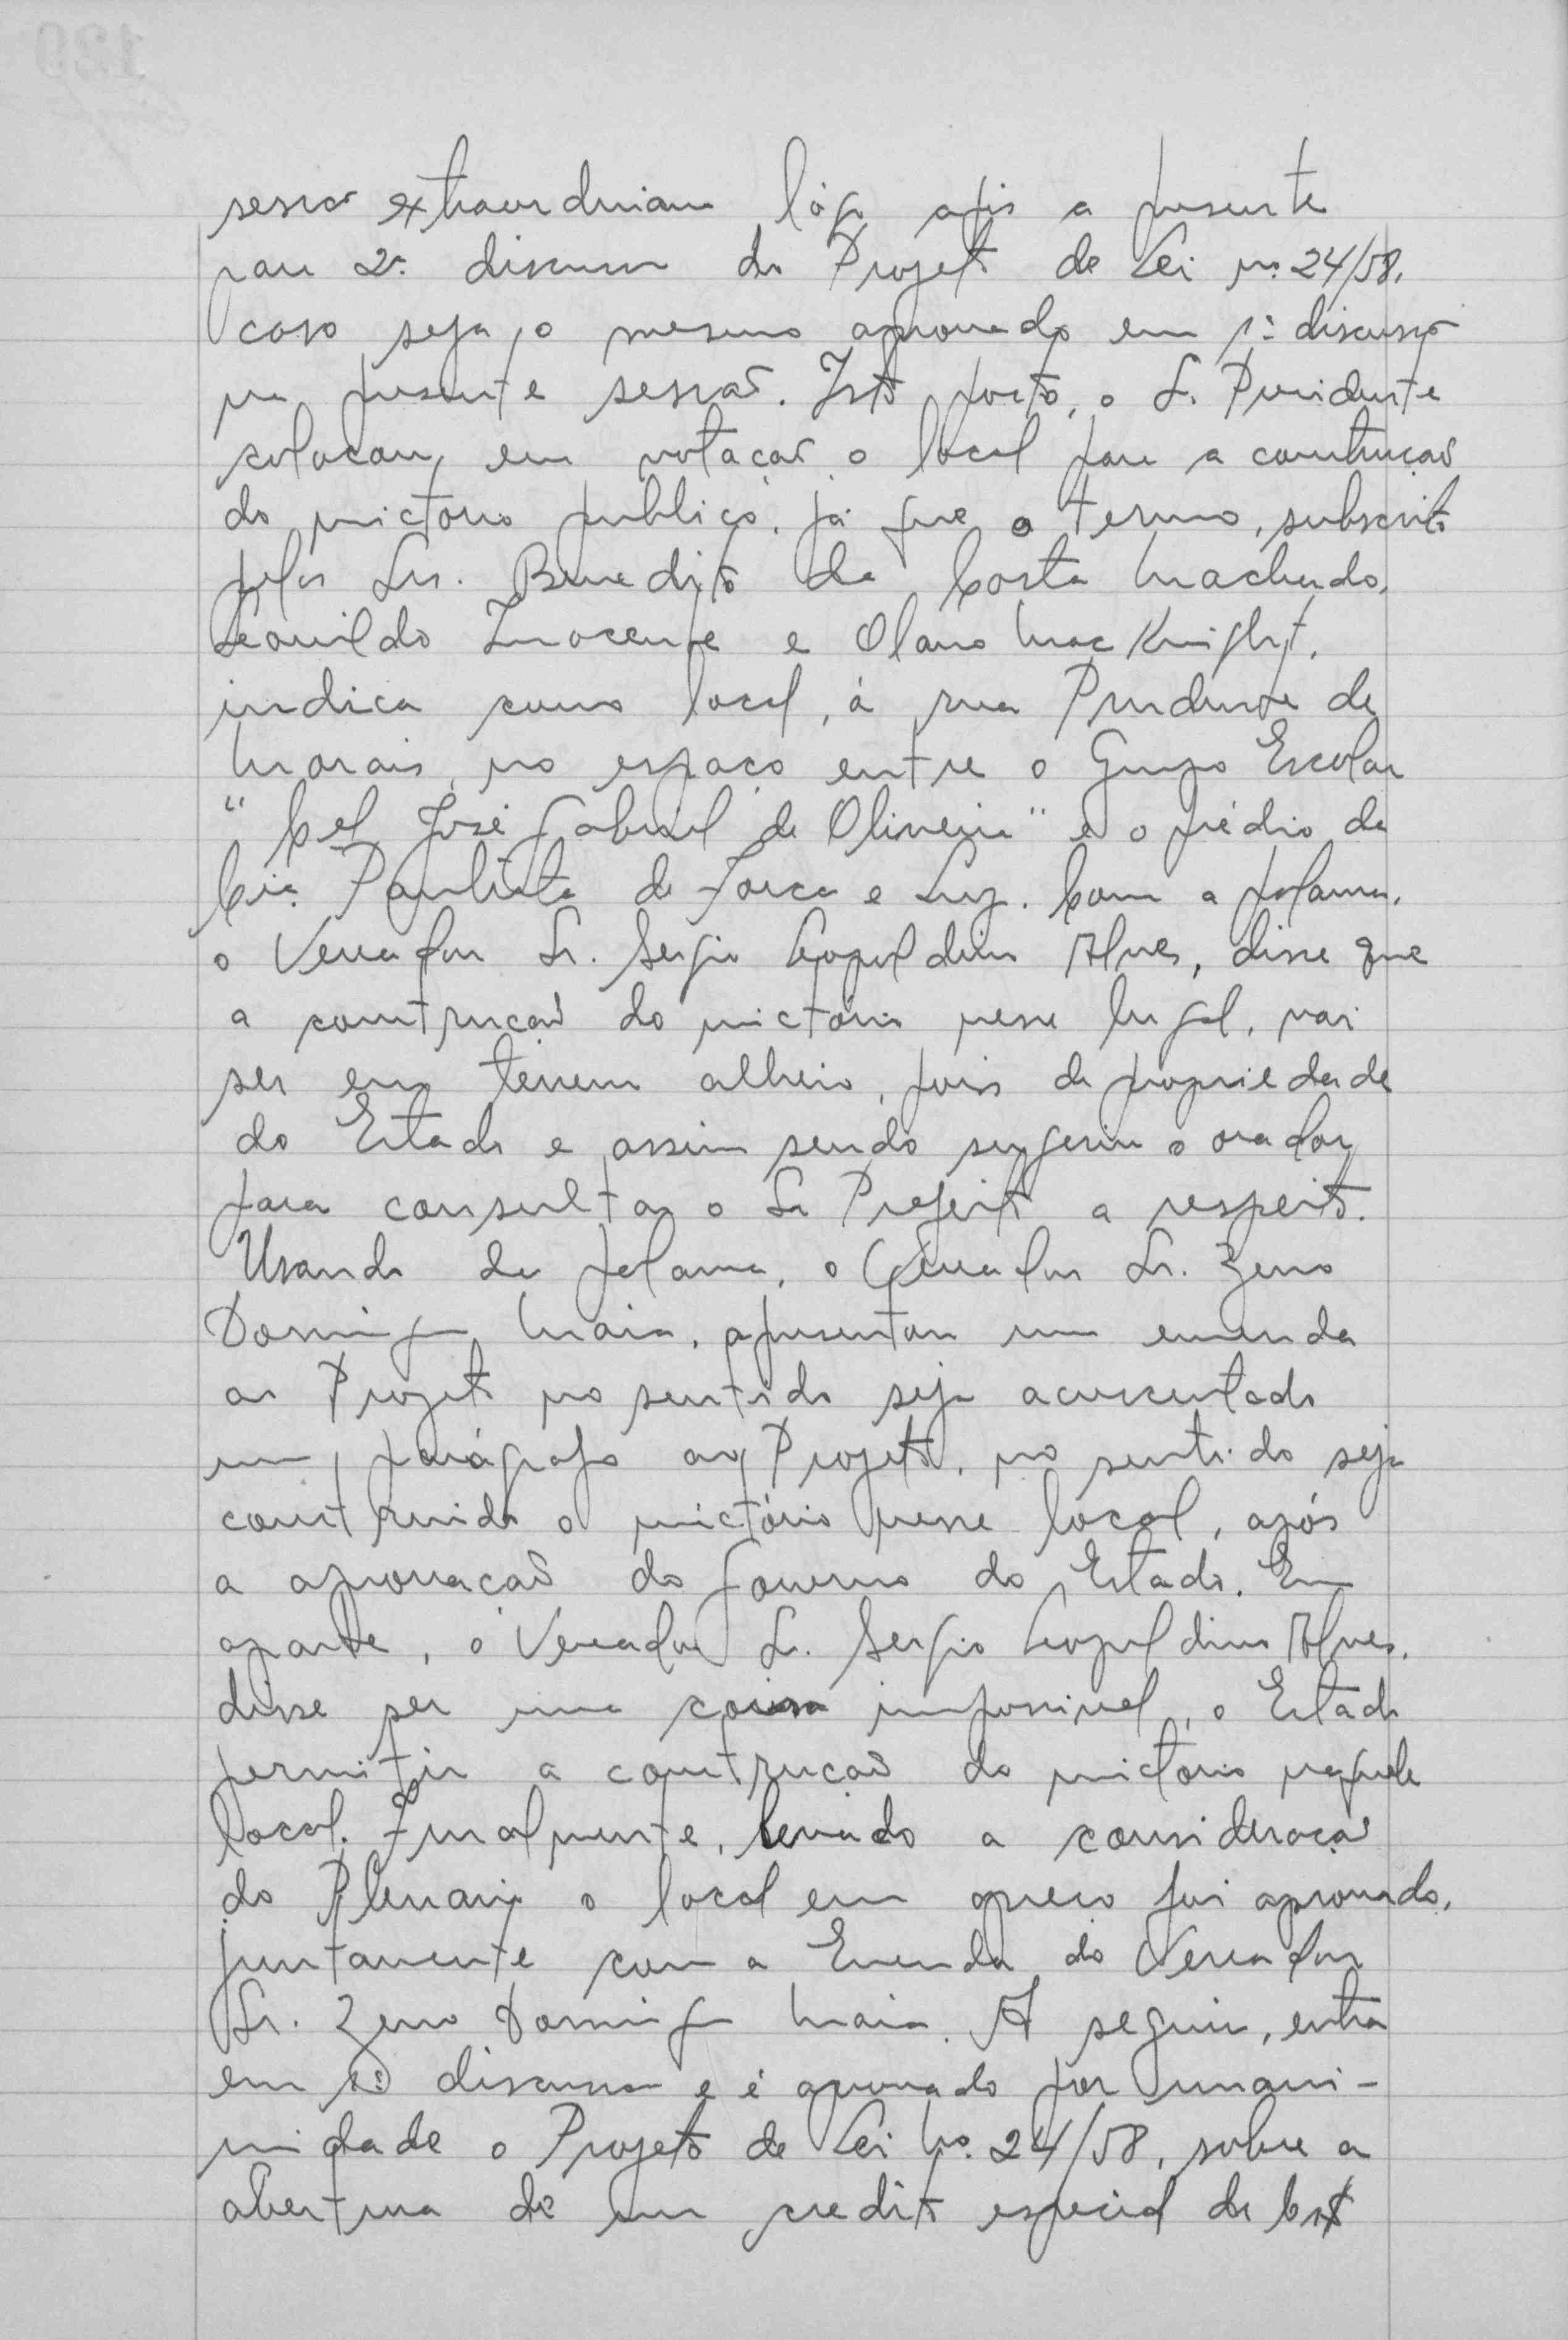 sessão extraordinaria lógo após a presente
para 2ª discussão do Projeto de Lei nº 24/58,
caso seja o mesmo aprovado em 1ª discussão
na presente sessão. Isto posto, o Sr. Presidente
colocou em votação o local para a construção
do mictorio publico, já que o termo, subscrito
pelos Srs. Benedito da Costa Machado,
Leonildo Inocente e Olavo Mac Knight,
indica como local, á rua Prudente de
Morais, no espaço entre o Grupo Escolar
"Cel José Gabriel de Oliveira" e o prédio da
Cia. Paulista de Força e Luz. Com a palavra,
o Vereador Sr. Sergio Leopoldino Alves, disse que
a construção do mictório nesse lugal, vai
ser em terreno alheio, pois de propriedade
do Estado e assim sendo sugeriu o orador
para consultar o Sr Prefeito a respeito.
Usando da palavra, o Vereador Sr. Zeno
Domingos Maia, apresentou uma emenda
ao Projeto no sentido seja acrescentado
um parágrafo ao Projeto, no sentido seja
construido o mictório nesse local, após
a aprovação do Governo do Estado. Em
aparte, o Vereador Sr. Sergio Leopoldino Alves,
disse ser uma coisa impossivel, o Estado
permitir a construção do mictorio naquele
local. Finalmente, levado a consideração
do Plenario o local em apreço foi aprovado,
juntamente com a Emenda do Vereador
Sr. Zeno Domingos Maia. A seguir, entra
em 1ª discussão e é aprovado por unani-
midade o Projeto de Lei nº. 24/58, sobre a
abertura de um credito especial de Cr$